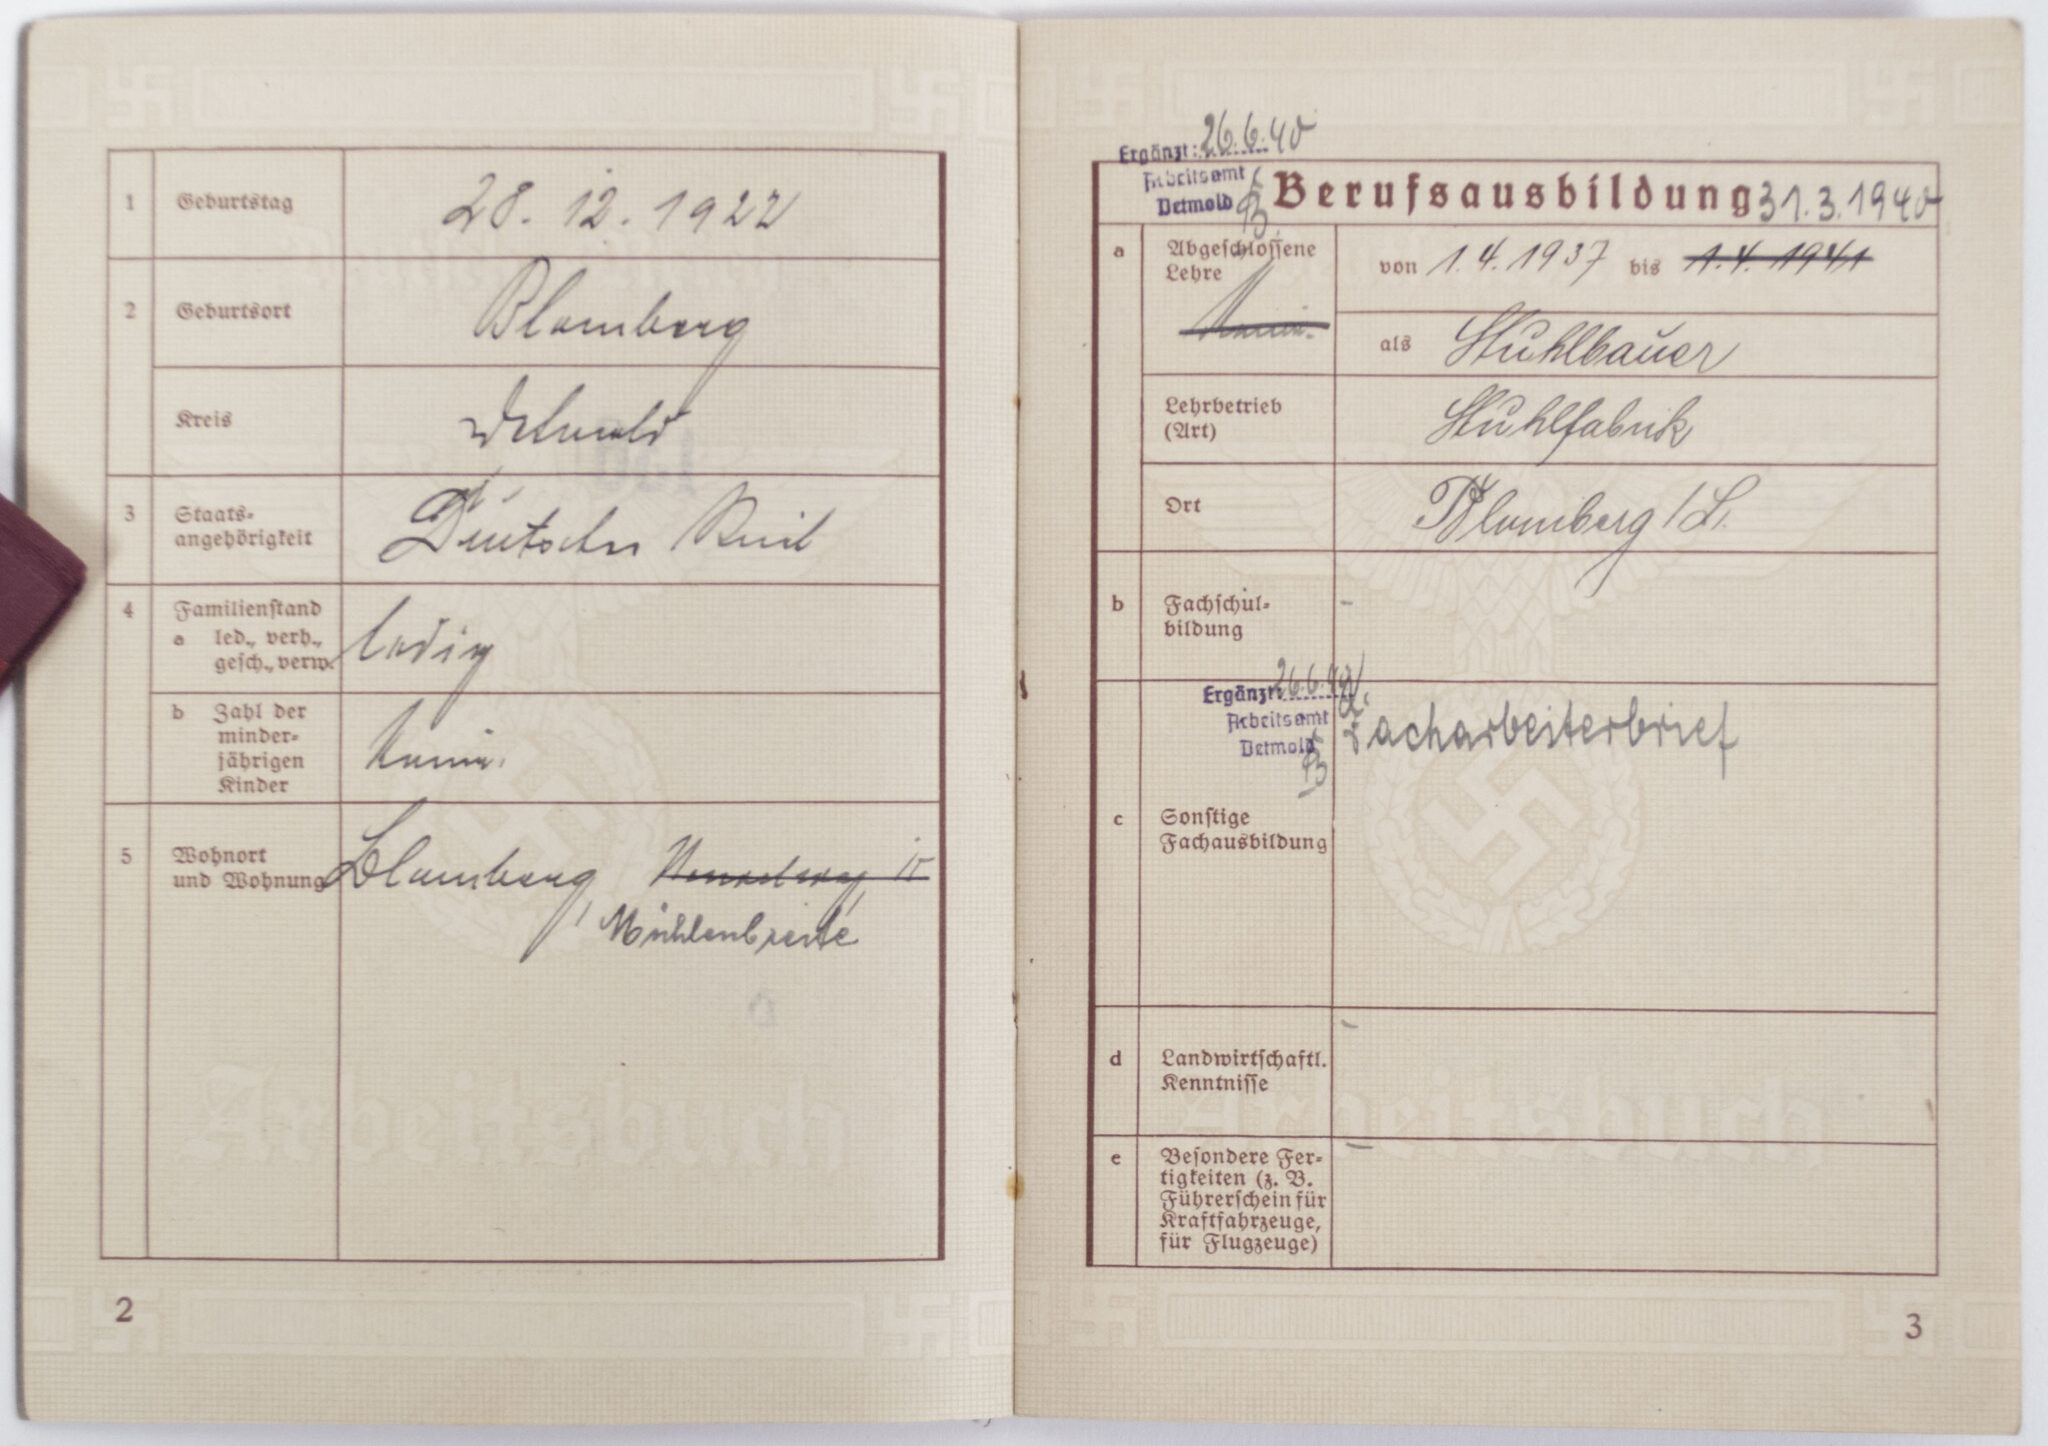 1 Geburtstag 28.12.1922
2 Geburtsort Blomberg
Kreis Detmold
3 Staats-
angehörigkeit Deutsches Reich
4 Familienstand
a led., verh.,
gesch., verw. ledig
b Zahl der
minder-
jährigen
Kinder Keine.
5 Wohnort
und Wohnung Blomberg,
Mühlenbreite
Arbeitsbuch
2
Ergänzt: 26.6.40
Arbeitsamt
Detmold
Berufsausbildung 31.3.1940
a Abgeschlossene
Lehre
Keine.
von 1.4.1937 bis 1.4.1941
als Stuhlbauer
Lehrbetrieb
(Art) Stuhlfabrik
Ort Blomberg/L.
b Fachschul-
bildung -
Ergänzt: 26.6.40
Arbeitsamt
Detmold
Facharbeiterbrief
c Sonstige
Fachausbildung
d Landwirtschaftl.
Kenntnisse -
e Besondere Fer-
tigkeiten (z. B.
Führerschein für
Kraftfahrzeuge,
für Flugzeuge) -
Arbeitsbuch
3